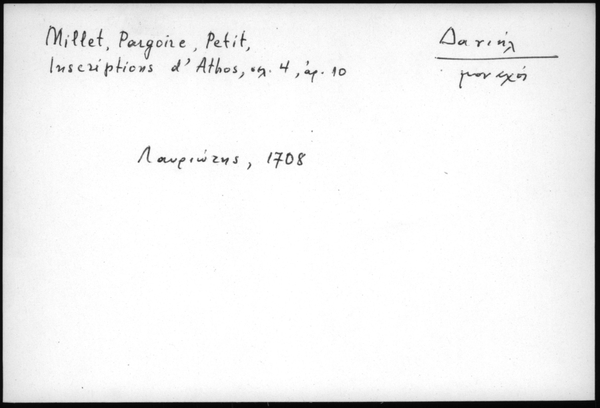 Millet, Pargoire, Petit,
Inscriptions d'Athos, σελ. 4, ἀρ. 10
Δανιήλ
μοναχός
Λαυριώτης, 1708